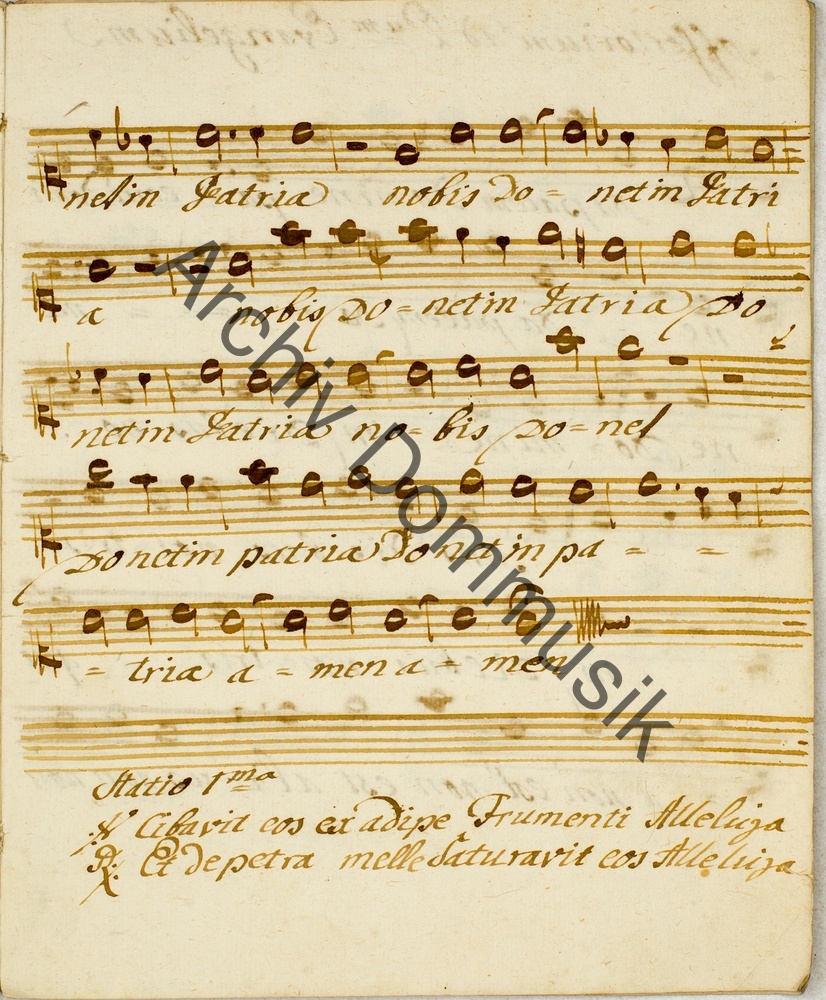 netin Patria nobis Do = netin Patri
a = = nobis Do = netin Patria Do
netin Patria no = bis Do = net
Donetin patria Donet in pa = =
= tria a = men a = men
Archiv Dommusik
Statio 1ma
℣ Cibavit eos ex adipe Frumenti Alleluja
℟: Et de petra melle Saturavit eos Alleluja